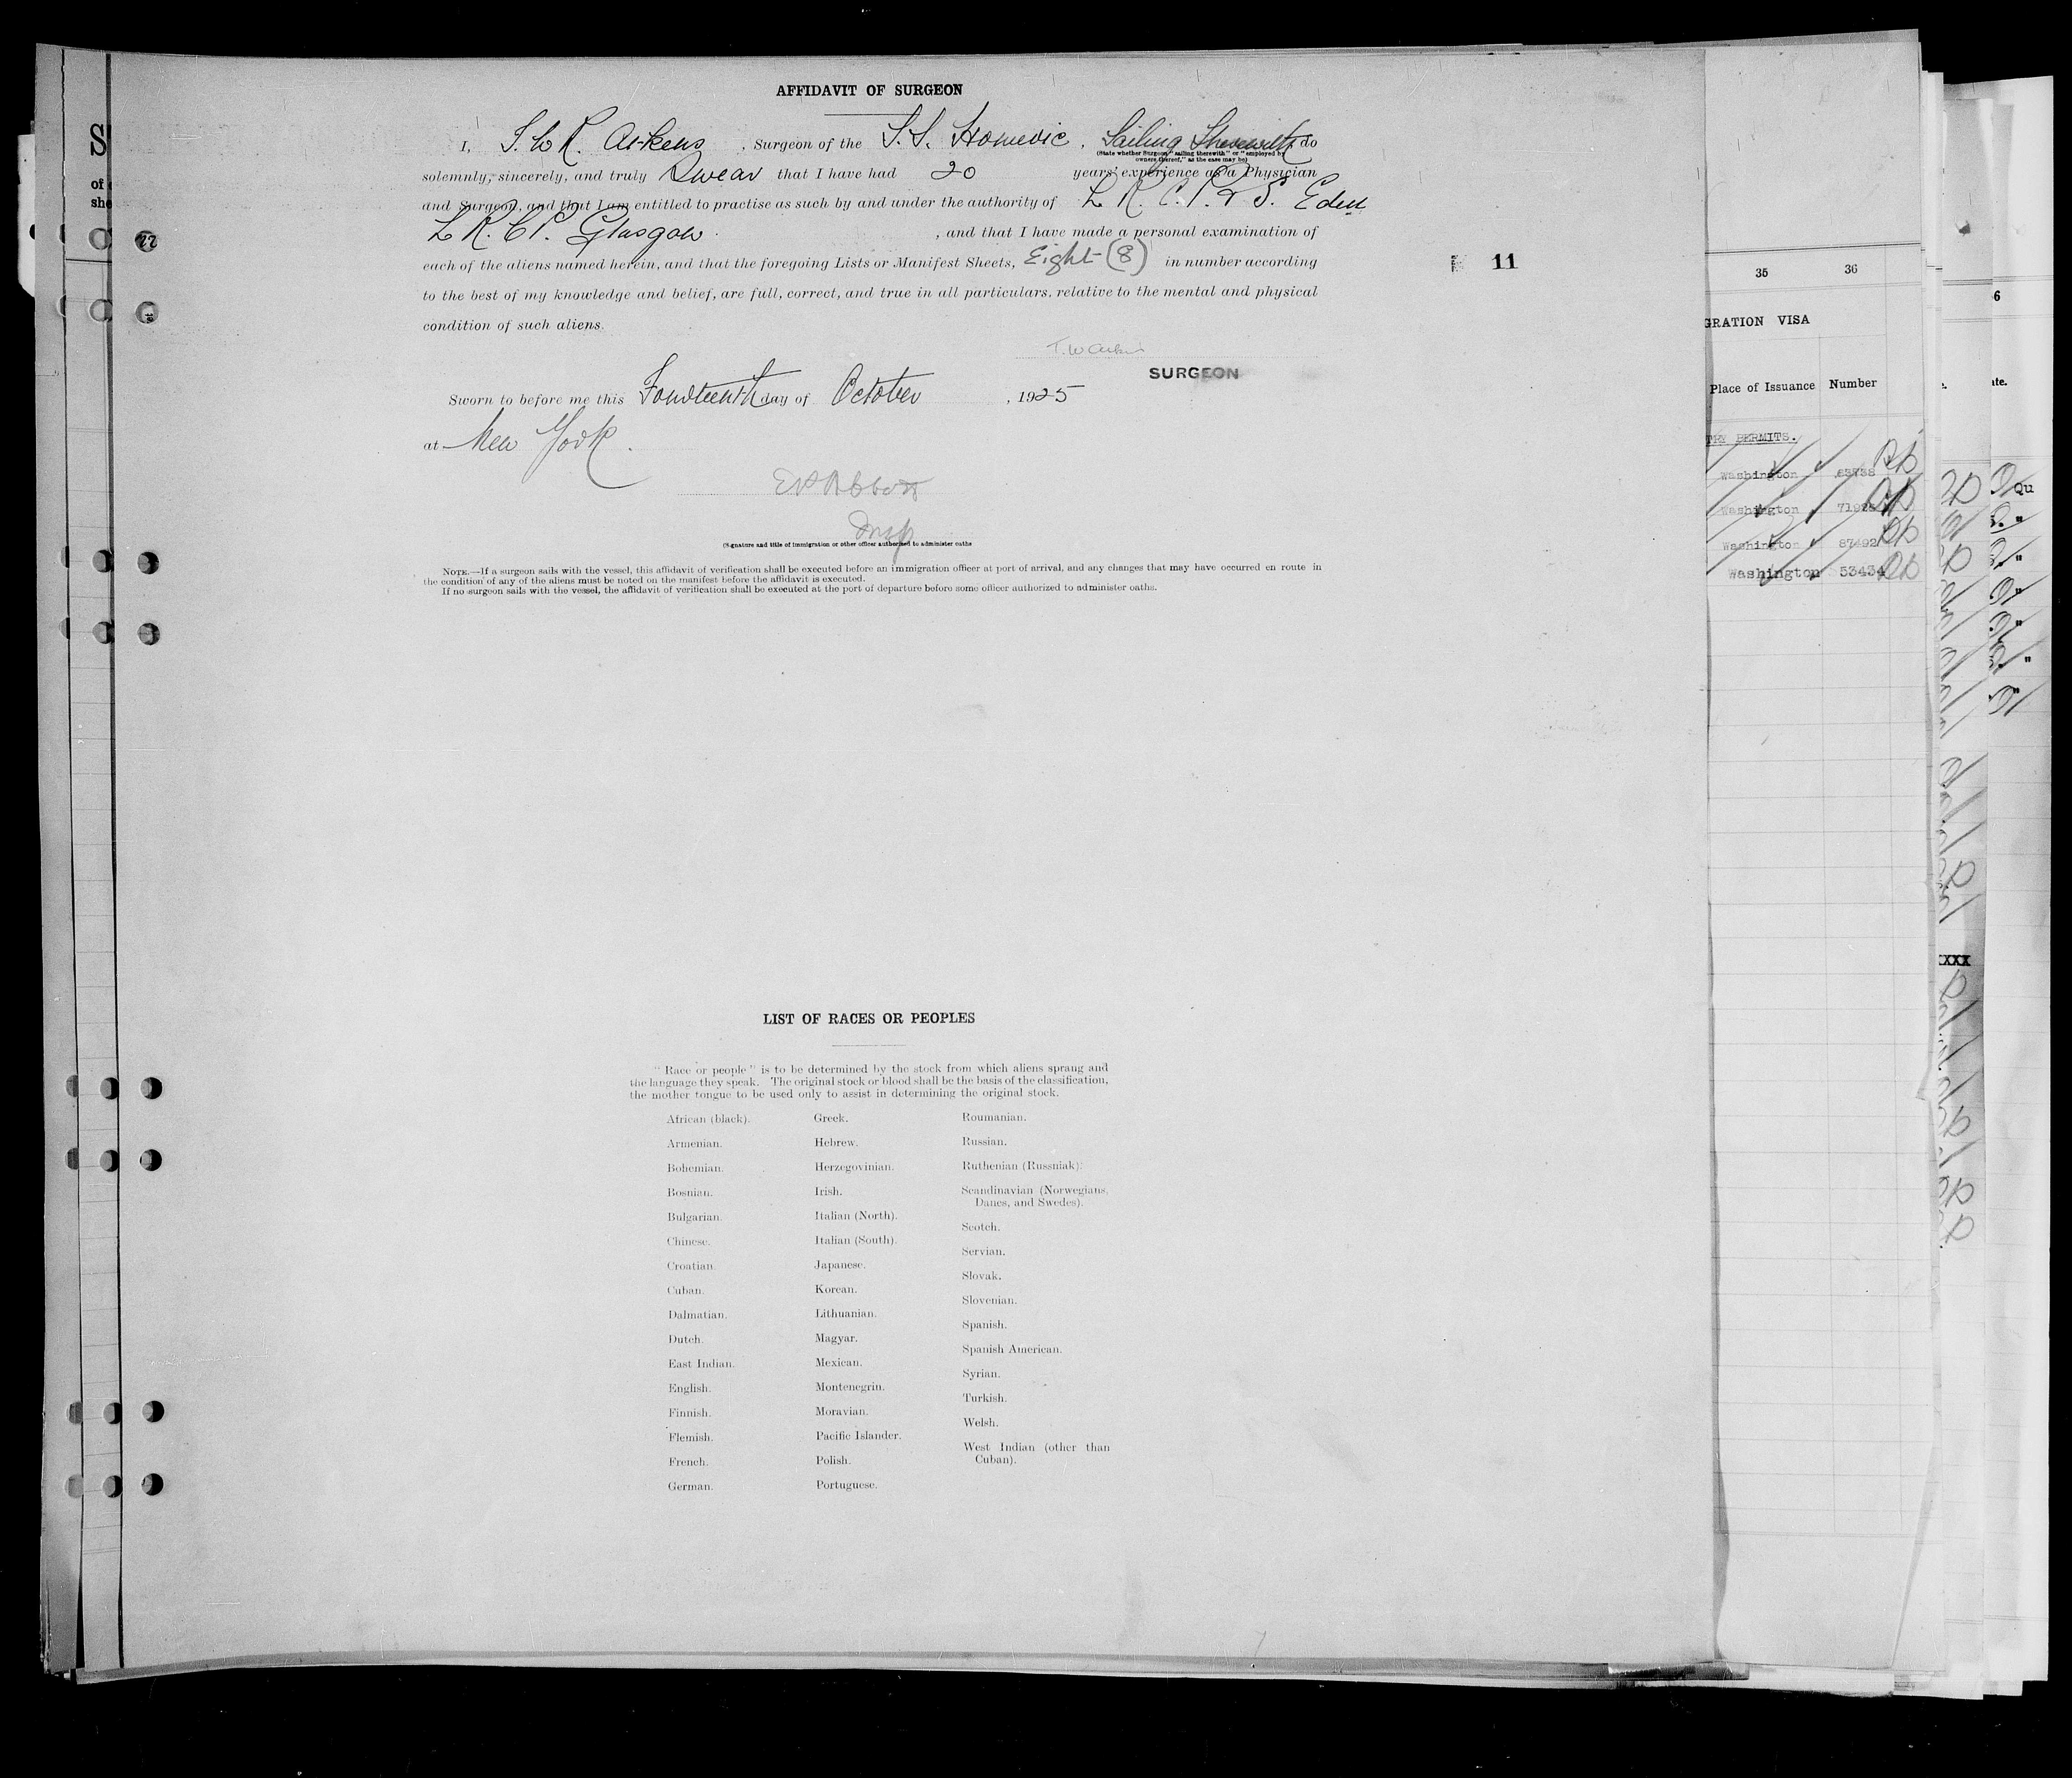 AFFIDAVIT OF SURGEON
I, T. W. R. Aikens, Surgeon of the S.S. Homeric, Sailing Therewith, do
(State whether Surgeon "sailing therewith" or "employed by owners thereof," as the case may be)
solemnly, sincerely, and truly Swear that I have had 20 years' experience as a Physician
and Surgeon, and that I am entitled to practise as such by and under the authority of L. R. C. P. & S. Edin
L R. C P. Glasgow , and that I have made a personal examination of
each of the aliens named herein, and that the foregoing Lists or Manifest Sheets, Eight (8) in number according
to the best of my knowledge and belief, are full, correct, and true in all particulars, relative to the mental and physical
condition of such aliens.
11
SURGEON
Sworn to before me this Fourteenth day of October , 1925
at New York.
Insp
(Signature and title of immigration or other officer authorized to administer oaths
NOTE.—If a surgeon sails with the vessel, this affidavit of verification shall be executed before an immigration officer at port of arrival, and any changes that may have occurred en route in
the condition of any of the aliens must be noted on the manifest before the affidavit is executed.
If no surgeon sails with the vessel, the affidavit of verification shall be executed at the port of departure before some officer authorized to administer oaths.
LIST OF RACES OR PEOPLES
"Race or people" is to be determined by the stock from which aliens sprang and
the language they speak. The original stock or blood shall be the basis of the classification,
the mother tongue to be used only to assist in determining the original stock.
African (black).
Armenian.
Bohemian.
Bosnian.
Bulgarian.
Chinese.
Croatian.
Cuban.
Dalmatian.
Dutch.
East Indian.
English.
Finnish.
Flemish.
French.
German.
Greek.
Hebrew.
Herzegovinian.
Irish.
Italian (North).
Italian (South).
Japanese.
Korean.
Lithuanian.
Magyar.
Mexican.
Montenegrin.
Moravian.
Pacific Islander.
Polish.
Portuguese.
Roumanian.
Russian.
Ruthenian (Russniak).
Scandinavian (Norwegians,
Danes, and Swedes).
Scotch.
Servian.
Slovak.
Slovenian.
Spanish.
Spanish American.
Syrian.
Turkish.
Welsh.
West Indian (other than
Cuban).
35 36
GRATION VISA
Place of Issuance Number
TRY PERMITS.
Washington
Washington
Washington 87492
Washington 53434